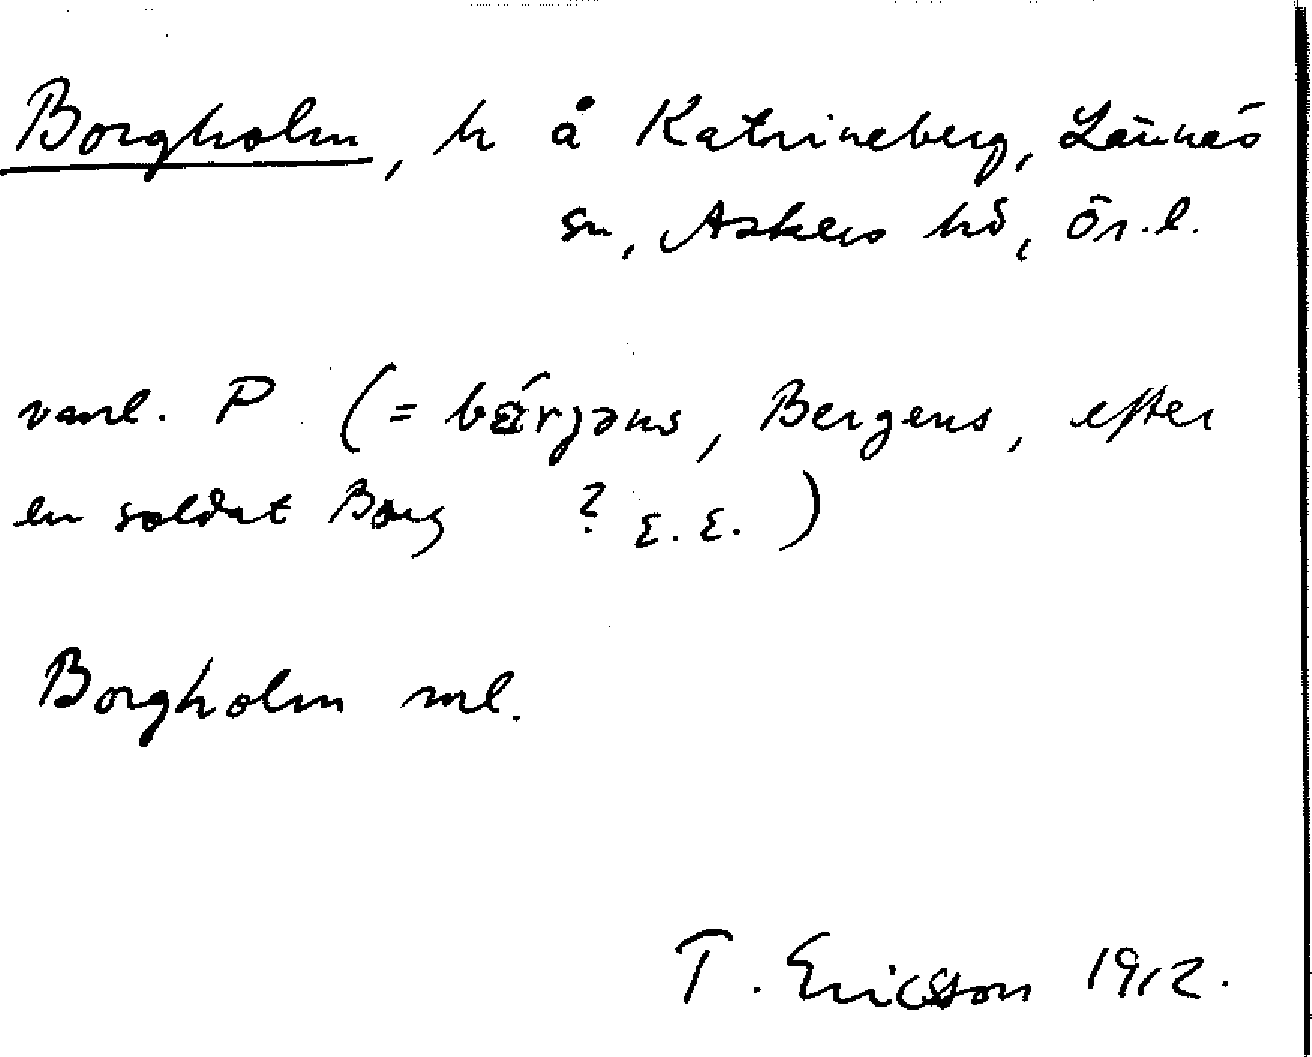 Borgholm, h å Katrineberg, Lännäs
sn, Askers hd, Ör.l.
vanl. P (= bärjəns, Bergens, efter
en soldat Borg ? E.E.)
Borgholm ml.
T. Ericsson 1912.